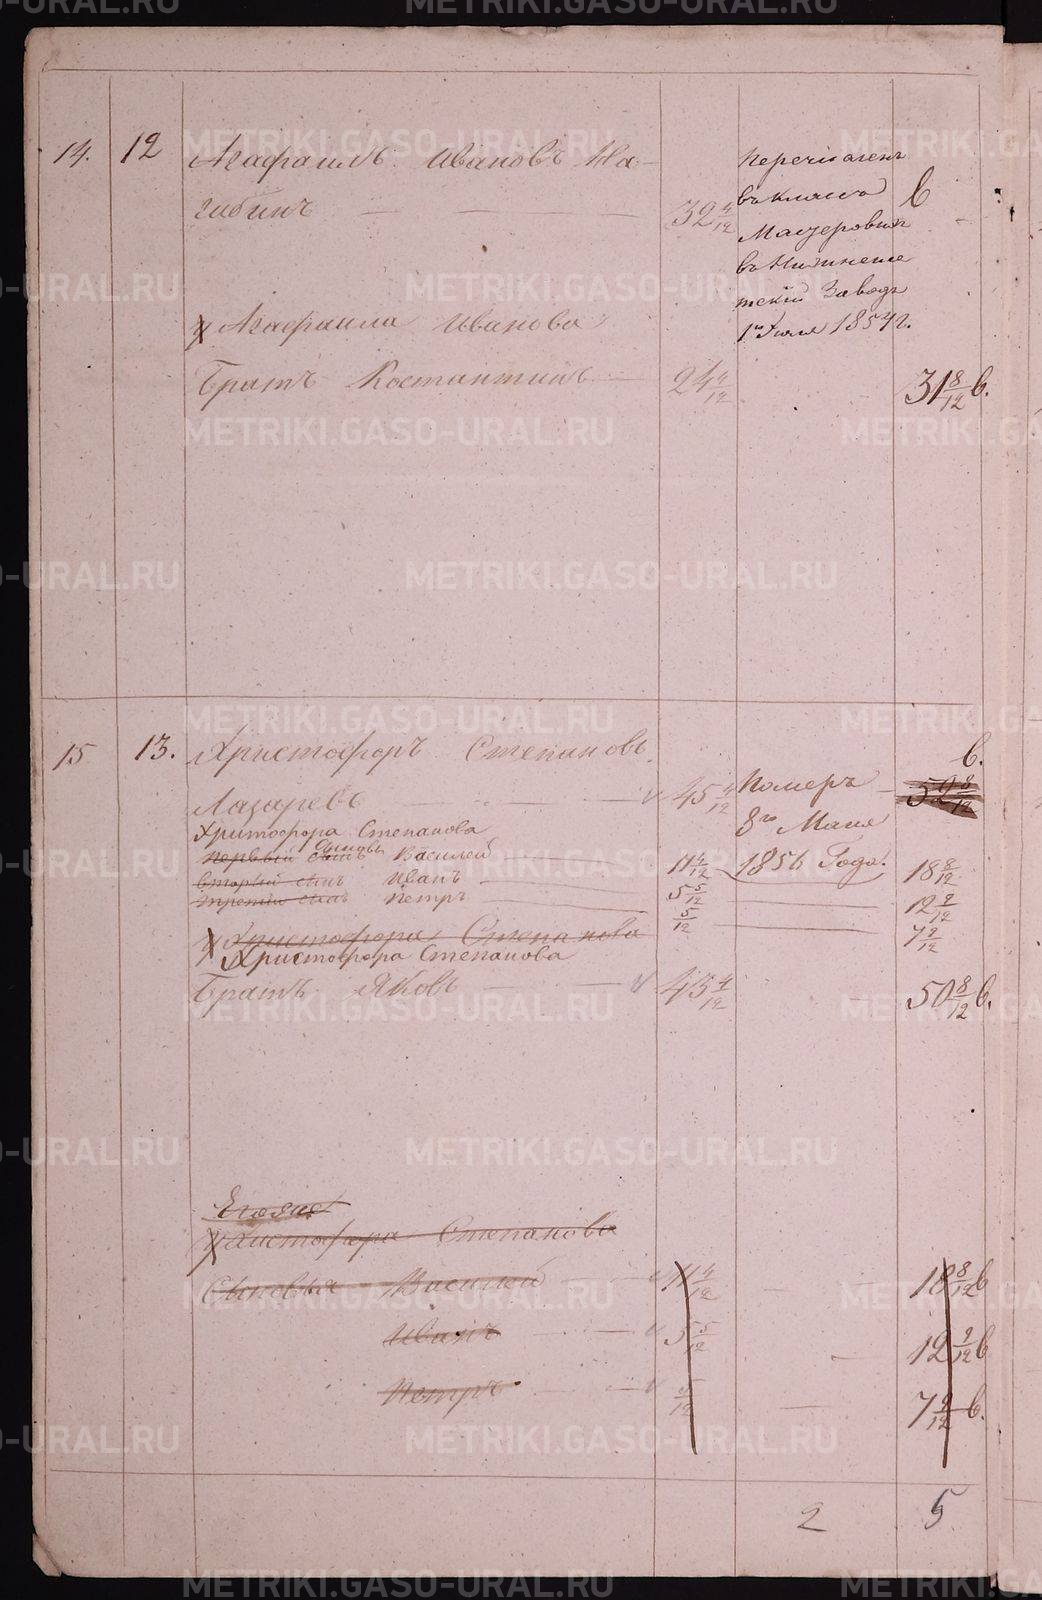 14. 12 Агафаилъ Ивановъ На-
гибинъ 32 4/12
Перечисленъ
въ классъ
в
въ Нижнеис
тскій Заводъ
1го Іюля 1854 г.
У Агафаила Иванова
Братъ Костантинъ 24 4/12 31 8/12 в.
15 13. Христофоръ Степановъ
Лазаревъ 45 4/12
Померъ
8го Маия
1856 Года.
в.
52 8/12
Христофора Степанова
Первый сынъ Сыновья Василей 11 4/12 18 8/12
Вторый сынъ Иванъ 5 5/12 12 9/12
Третій сынъ Петръ 5/12 7 9/12
У Христофора Степанова
Христофора Степанова
Братъ Яковъ 43 4/12 50 8/12 в.
У Христофора Степанова
Сыновья Василей 11 4/12 18 8/12 в
Иванъ 5 5/12 12 9/12 в
Петръ 5/12 7 9/12 в.
2 5
METRIKI.GASO-URAL.RU